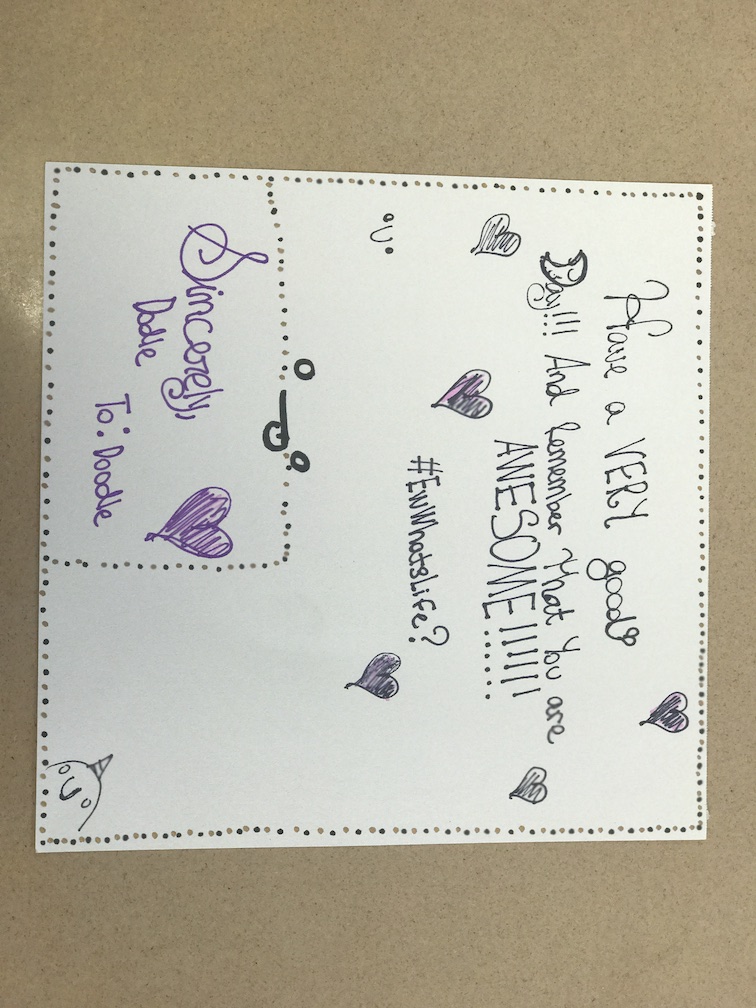 Have a VERY good
Day!!! And Remember That You are
AWESOME!!!!!!!
#EwWhatsLife?
Sincerely,
Dodle
To: Doodle